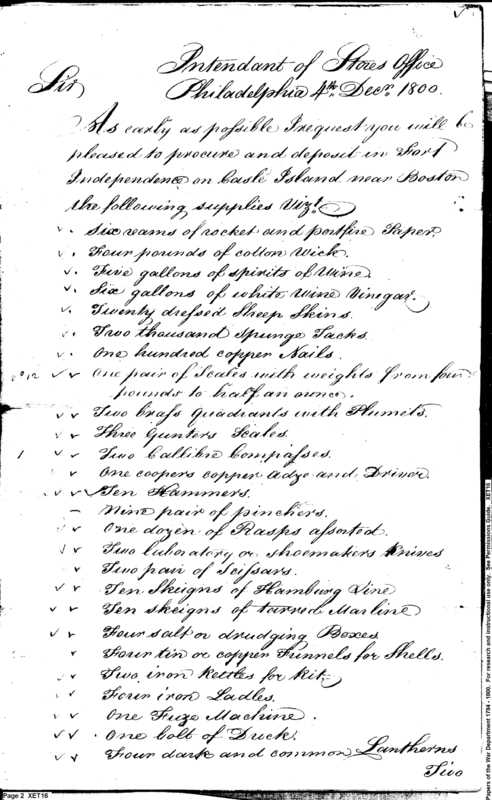 Intendant of Stores Office
Sir, Philadelphia 4th. Decr. 1800.
As early as possible I request you will be
pleased to procure and deposit in Fort
Independence on Casle Island near Boston
the following supplies Vizt.
Six reams of rocket and portfire Paper.
Four pounds of cotton Wick.
Five gallons of spirits of Wine
Six gallons of white Wine Vinegar.
Twenty dressed Sheep Skins.
Two thousand Spunge Tacks.
One hundred copper Nails.
One pair of Scales with weights from four
pounds to half an ounce.
Two brass Quadrants with Plumets.
Three Gunters Scales.
Two Callibre Compasses.
One coopers copper Adze and Driver.
Ten Hammers.
Nine pair of pinchers.
One dozen of Rasps assorted.
Two luboratory or shoemakers Knives
Two pair of Scissars.
Ten Skeigns of Hamburg Line
Ten skeigns of tarred Marline
Four salt or drudging Boxes
Four tin or copper Funnels for Shells.
Two iron kettles for Kit.
Four iron Ladles.
One Fuze Machine.
One bolt of Duck.
Four dark and common Lantherns
Two
Page 2 XET16
Papers of the War Department 1784 - 1800. For research and instructional use only. See Permissions Guide. XET16